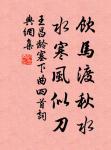 飲馬渡秋水
水寒風似刀
王昌齡塞下曲四首詞
典網集